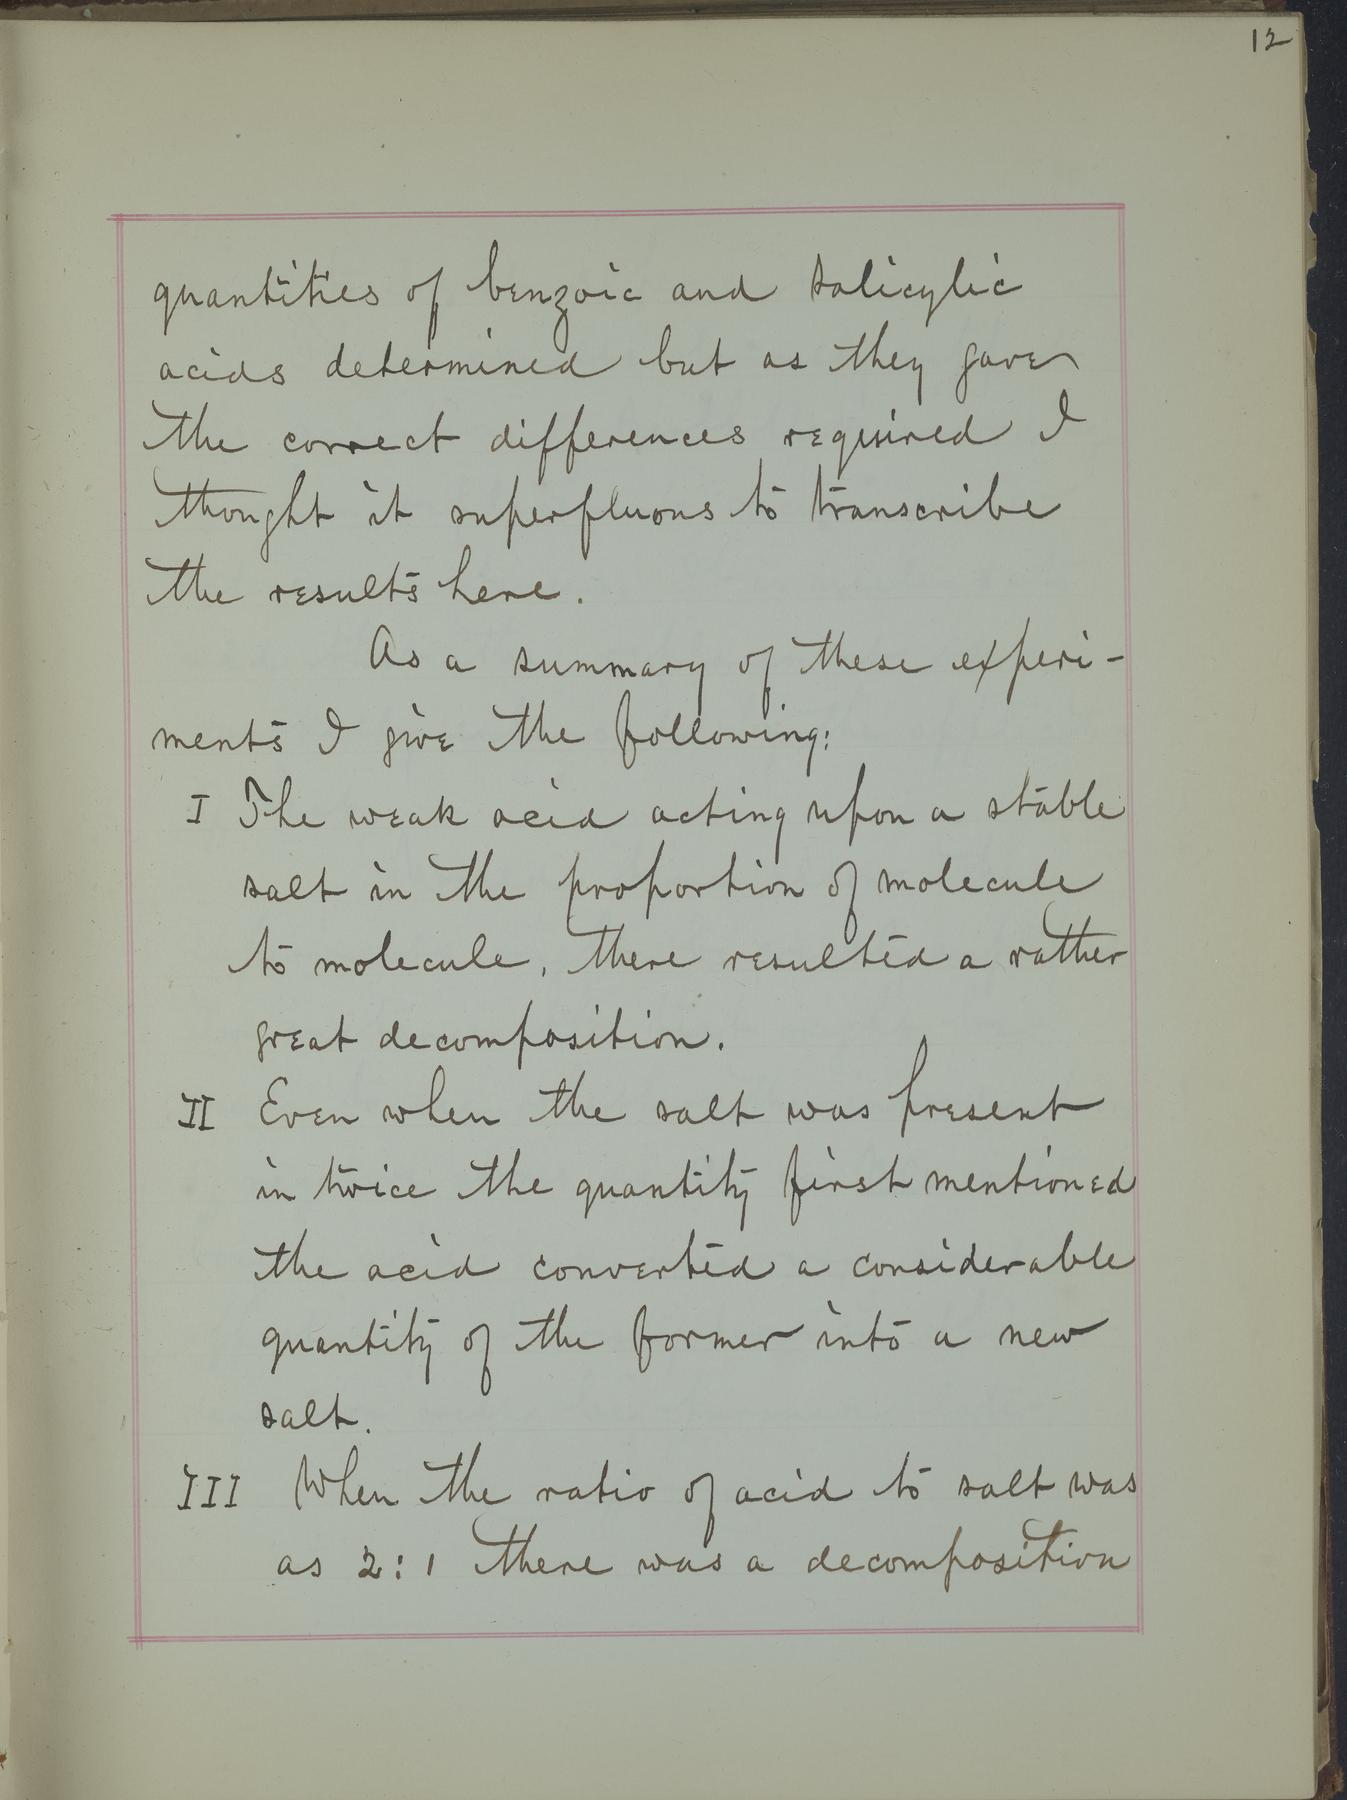 12
quantities of benzoic and salicylic
acids determined but as they gave
the correct differences required I
thought it superfluous to transcribe
the results here.
As a summary of these experi-
ments I give the following:
I The weak acid acting upon a stable
salt in the proportion of molecule
to molecule, there resulted a rather
great decomposition.
II Even when the salt was present
in twice the quantity first mentioned
the acid converted a considerable
quantity of the former into a new
salt.
III When the ratio of acid to salt was
as 2:1 there was a decomposition